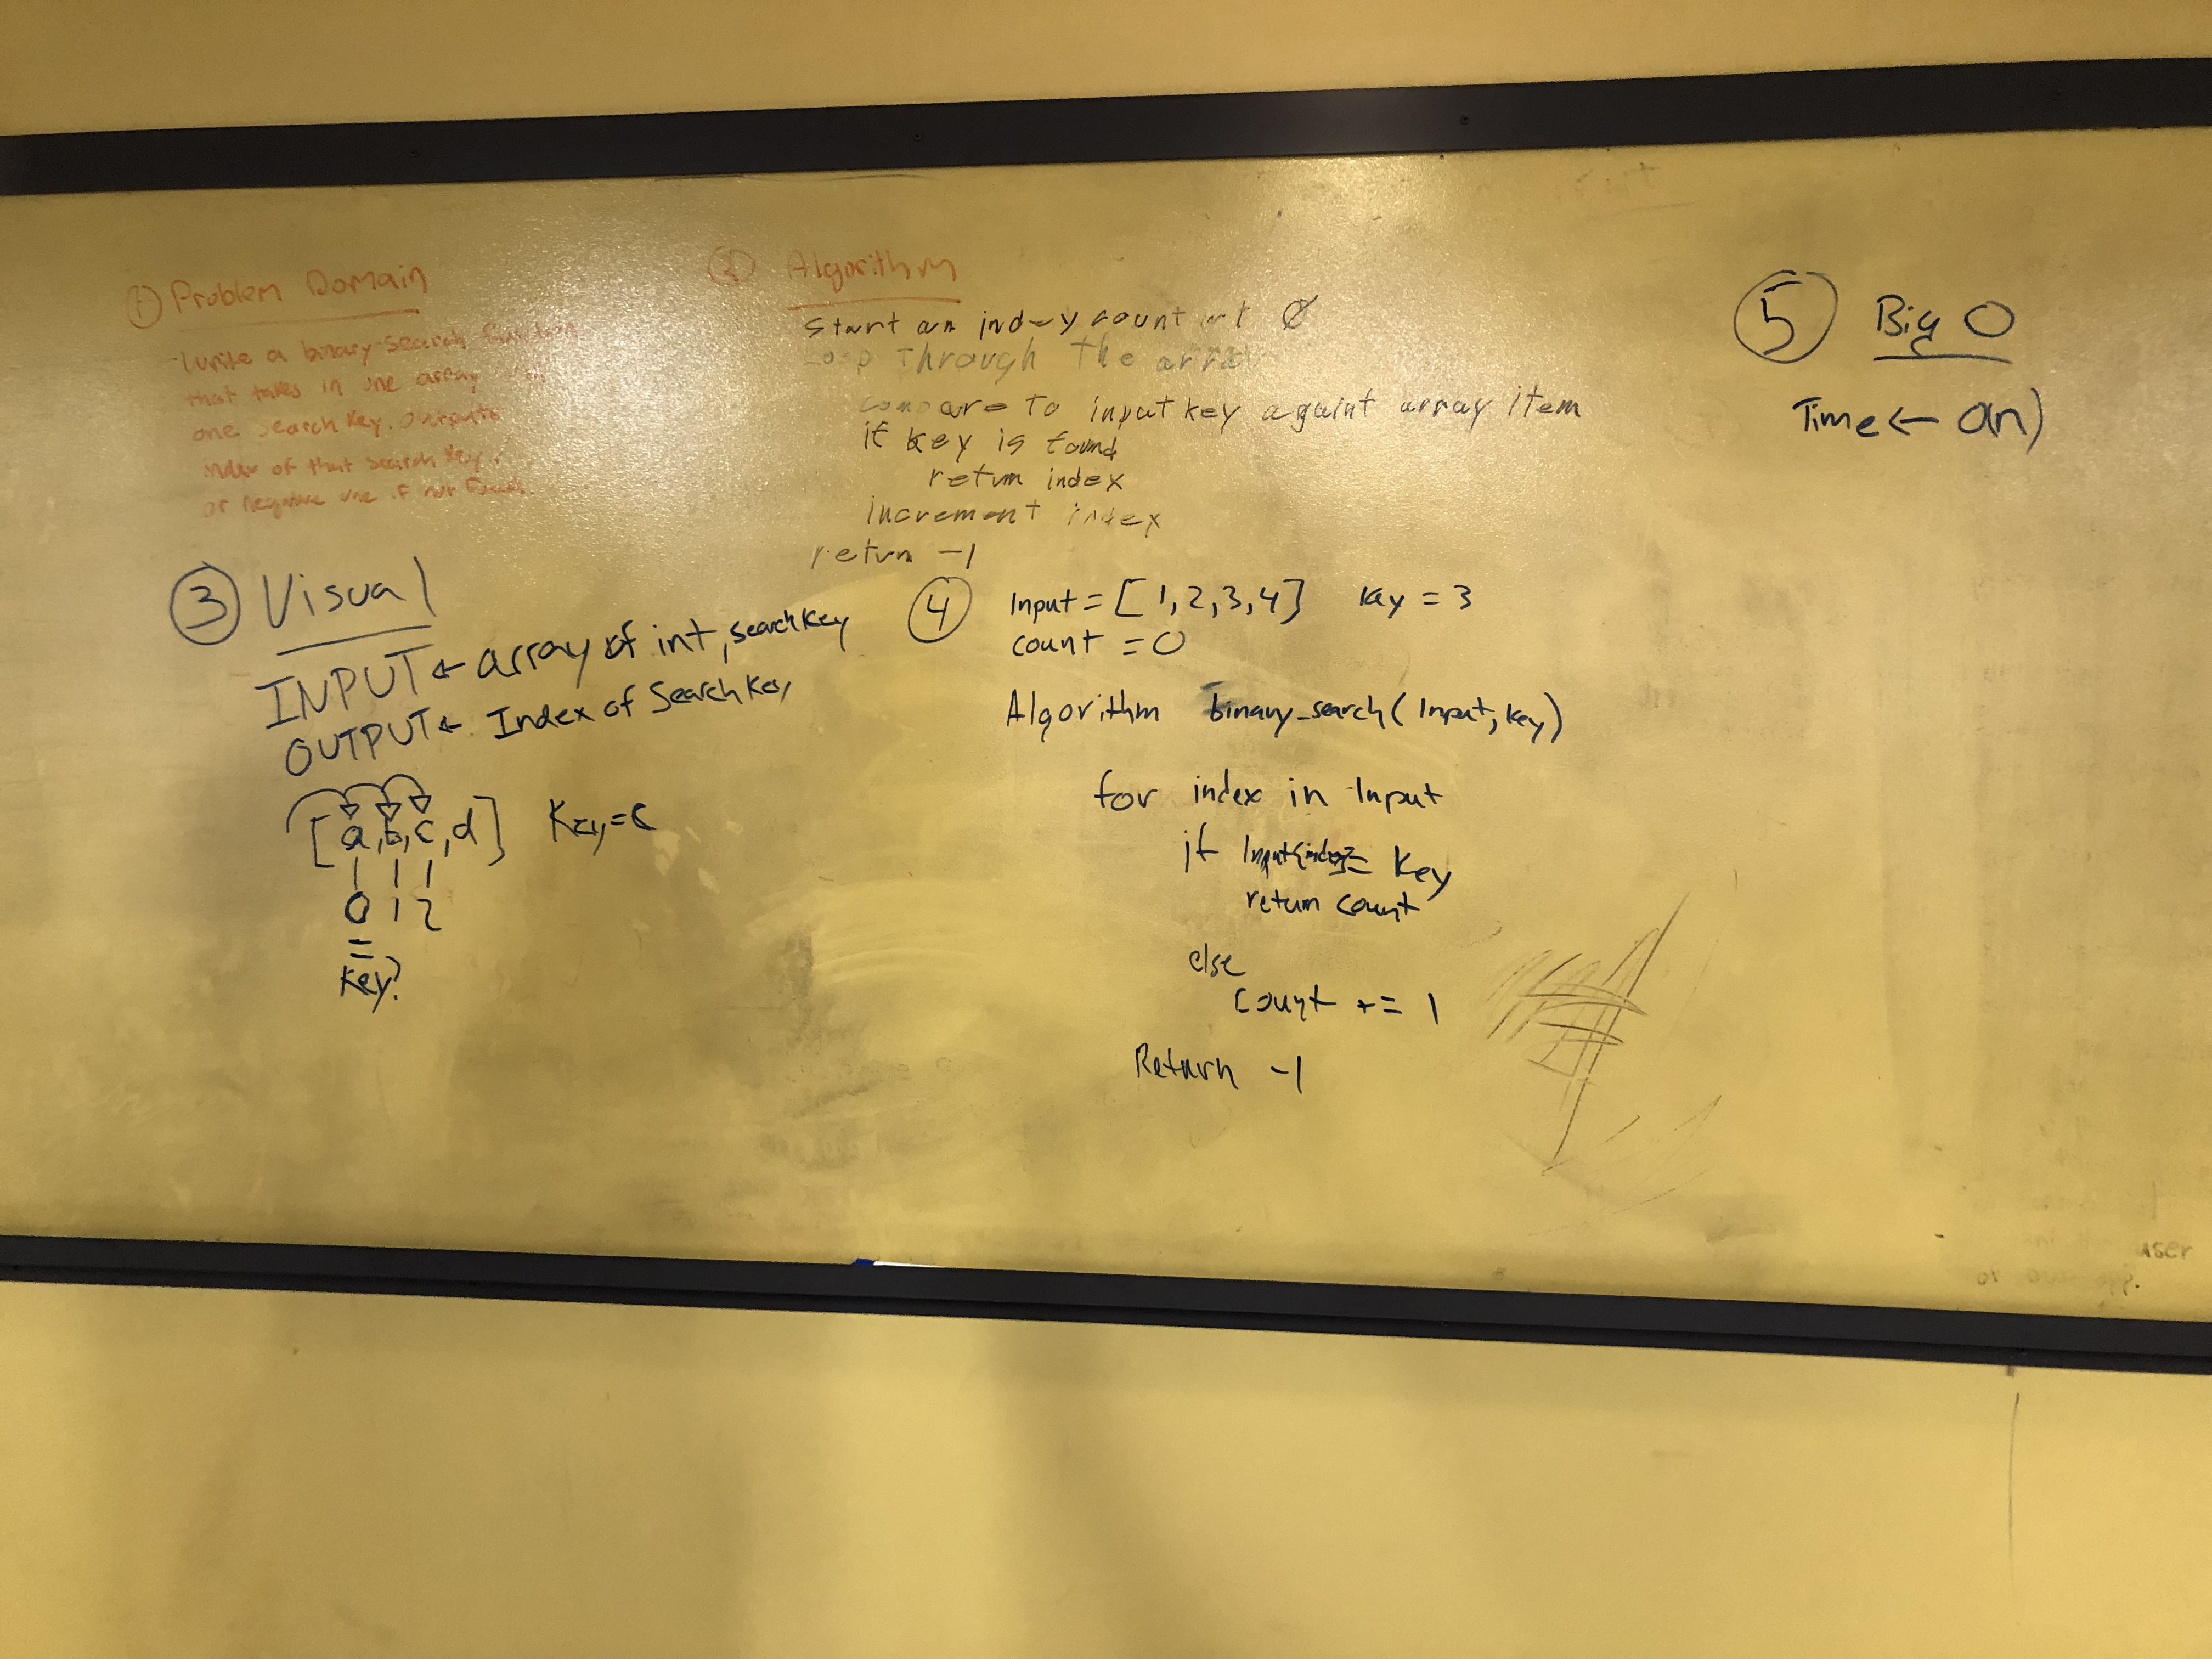 ① Problem Domain
- Write a binary search function
that takes in one array
one search key. outputs
index of that search key.
or negative one if not found.
② Algorithm
Start an index count at 0
Loop Through The array
compare to input key againt array item
if key is found
return index
increment index
return -1
③ Visual
INPUT ← array of int, search key
OUTPUT ← Index of Search key
[a,b,c,d] Key=c
0 1 2
=
Key?
④ Input = [1,2,3,4] key = 3
count = 0
Algorithm binary_search(Input, key)
for index in Input
if Input[index] = key
return count
else
count += 1
Return -1
⑤ Big O
Time ← O(n)
user